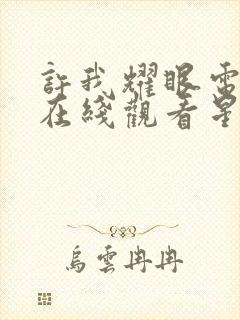 許我耀眼電
在綫觀看星
烏雲冉冉